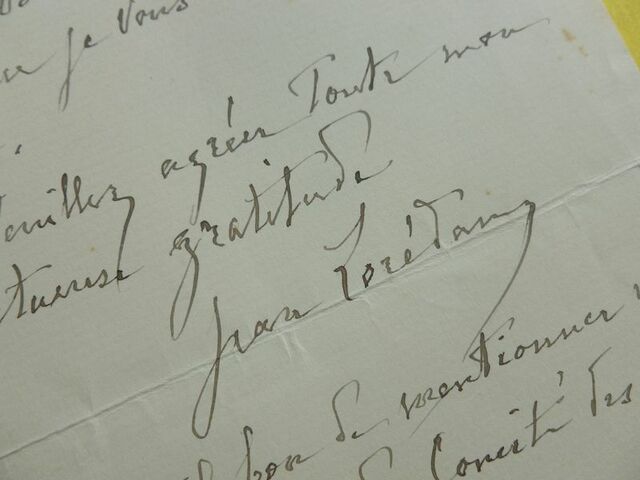 je vous
Veuillez agréer toute mon
gratitude
Jean Lorédan
bon de mentionner
Comité des